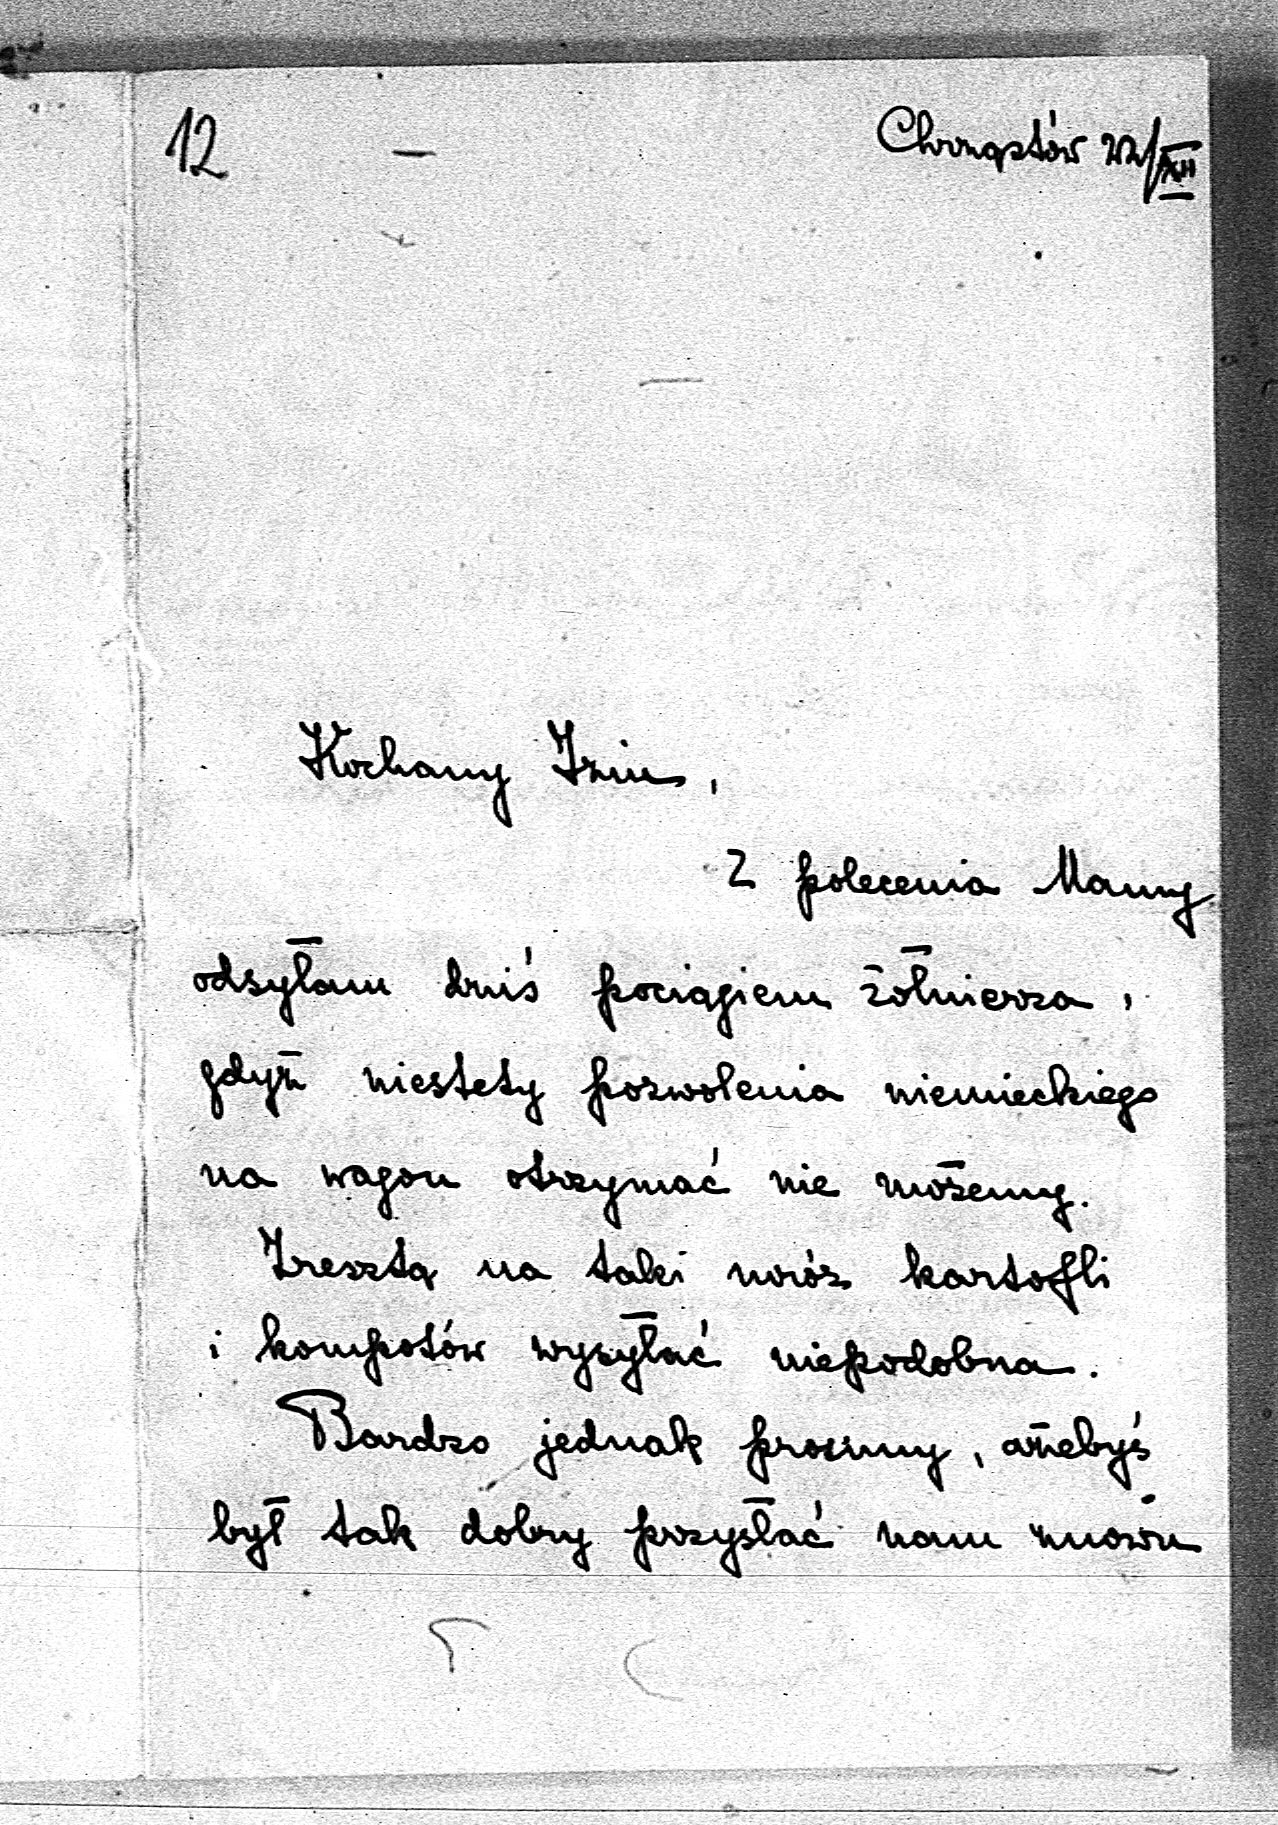 12
Chrząstów 22/XII
Kochany Iziu,
Z polecenia Mamy
odsyłam dziś pociągiem żołnierza,
gdyż niestety pozwolenia niemieckiego
na wagon otrzymać nie możemy.
Zresztą na taki mróz kartofli
i kompotów wysyłać niepodobna.
Bardzo jednak prosimy, ażebyś
był tak dobry przysłać nam znowu